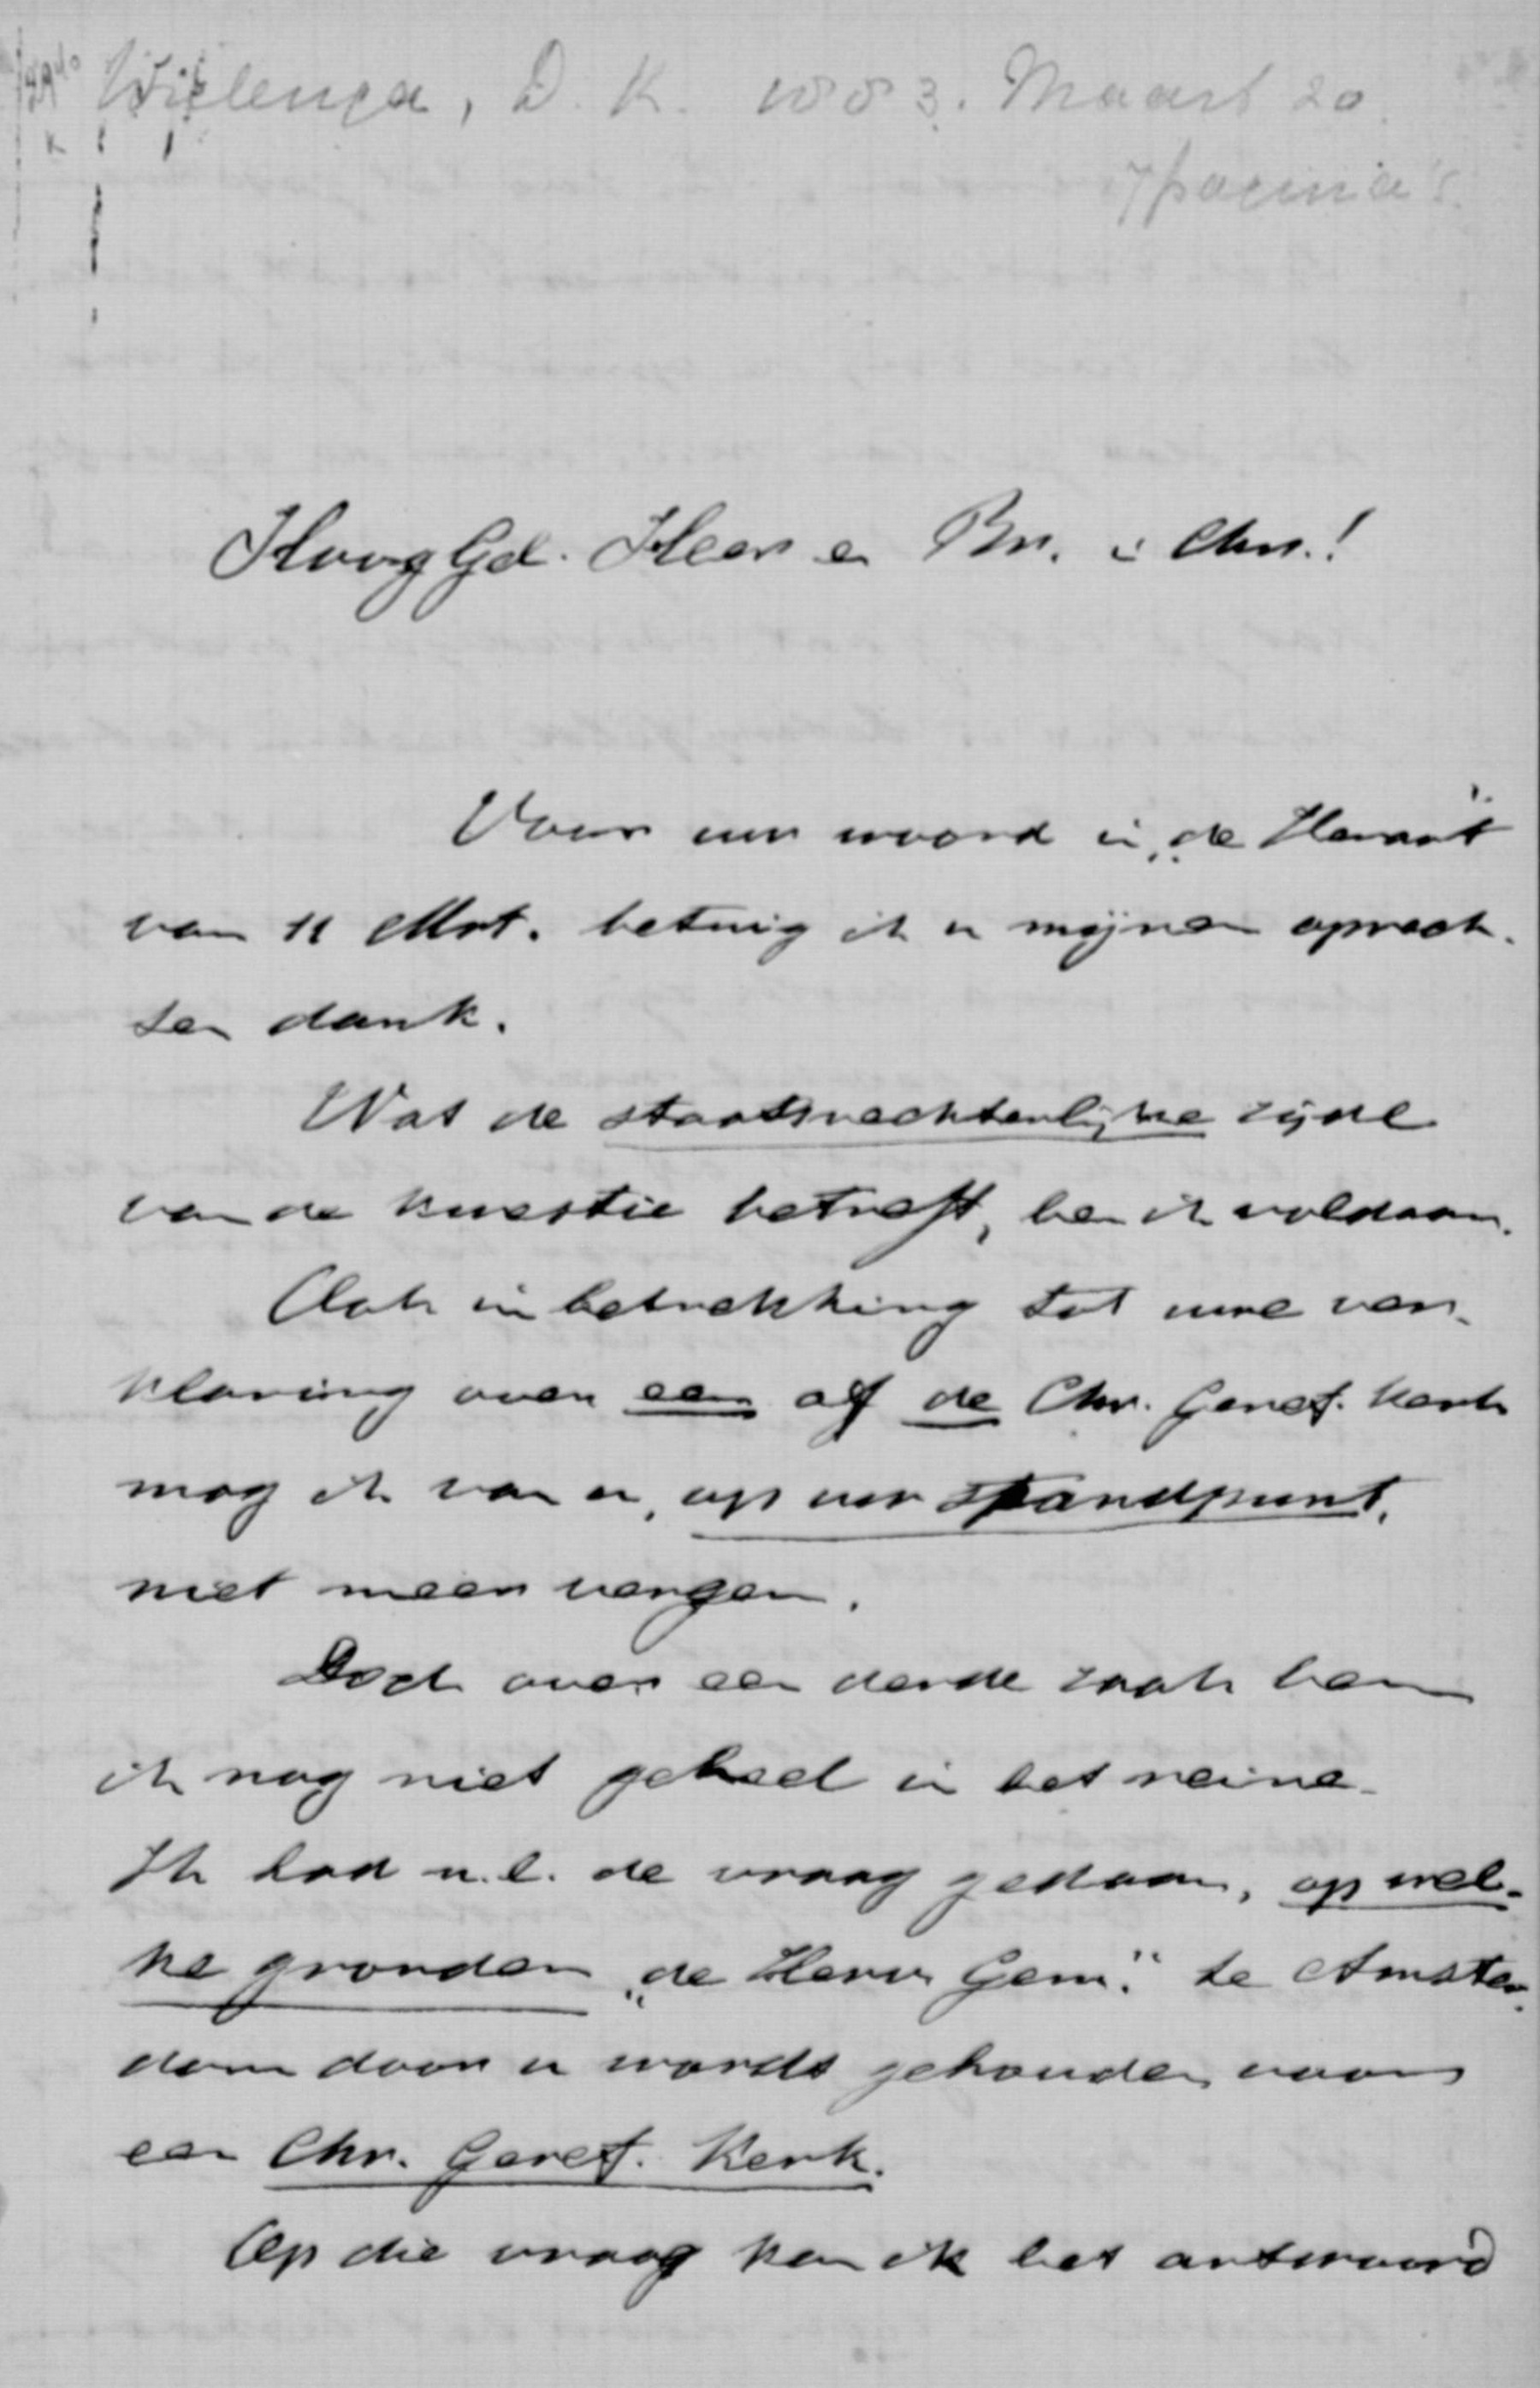 Wielenga, D. K. 1883. Maart 20.
7 pagina's.
HoogGel. Heer en Br. in Chr.!
Voor uw woord in „de Heraut"
van 11 Mrt. betuig ik u mijnen oprech-
ten dank.
Wat de staatsrechterlijke zijde
van de kwestie betreft, ben ik voldaan.
Ook in betrekking tot uwe ver-
klaring over een of de Chr. Geref. Kerk
mag ik van u, op uw standpunt,
niet meer vergen.
Doch over een derde zaak ben
ik nog niet geheel in het reine.
Ik had n.l. de vraag gedaan, op wel-
ke gronden „de Herv. Gem." te Amster-
dam door u wordt gehouden voor
een Chr. Geref. Kerk.
Op die vraag kan ik het antwoord